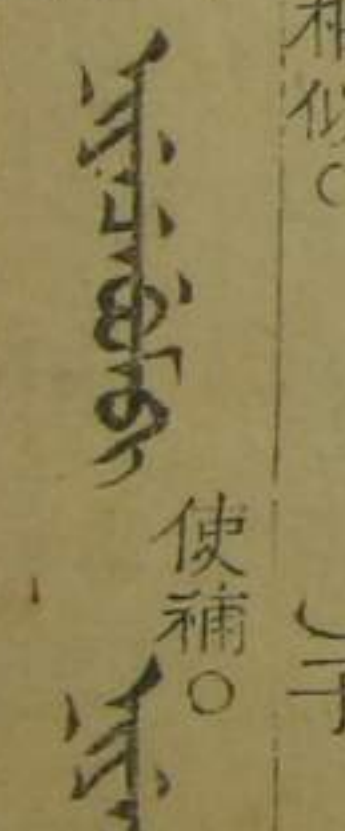 ᠨᡳᠶᡝᠴᡝᠪᡠᠮᠪᡳ
使補。
相似。